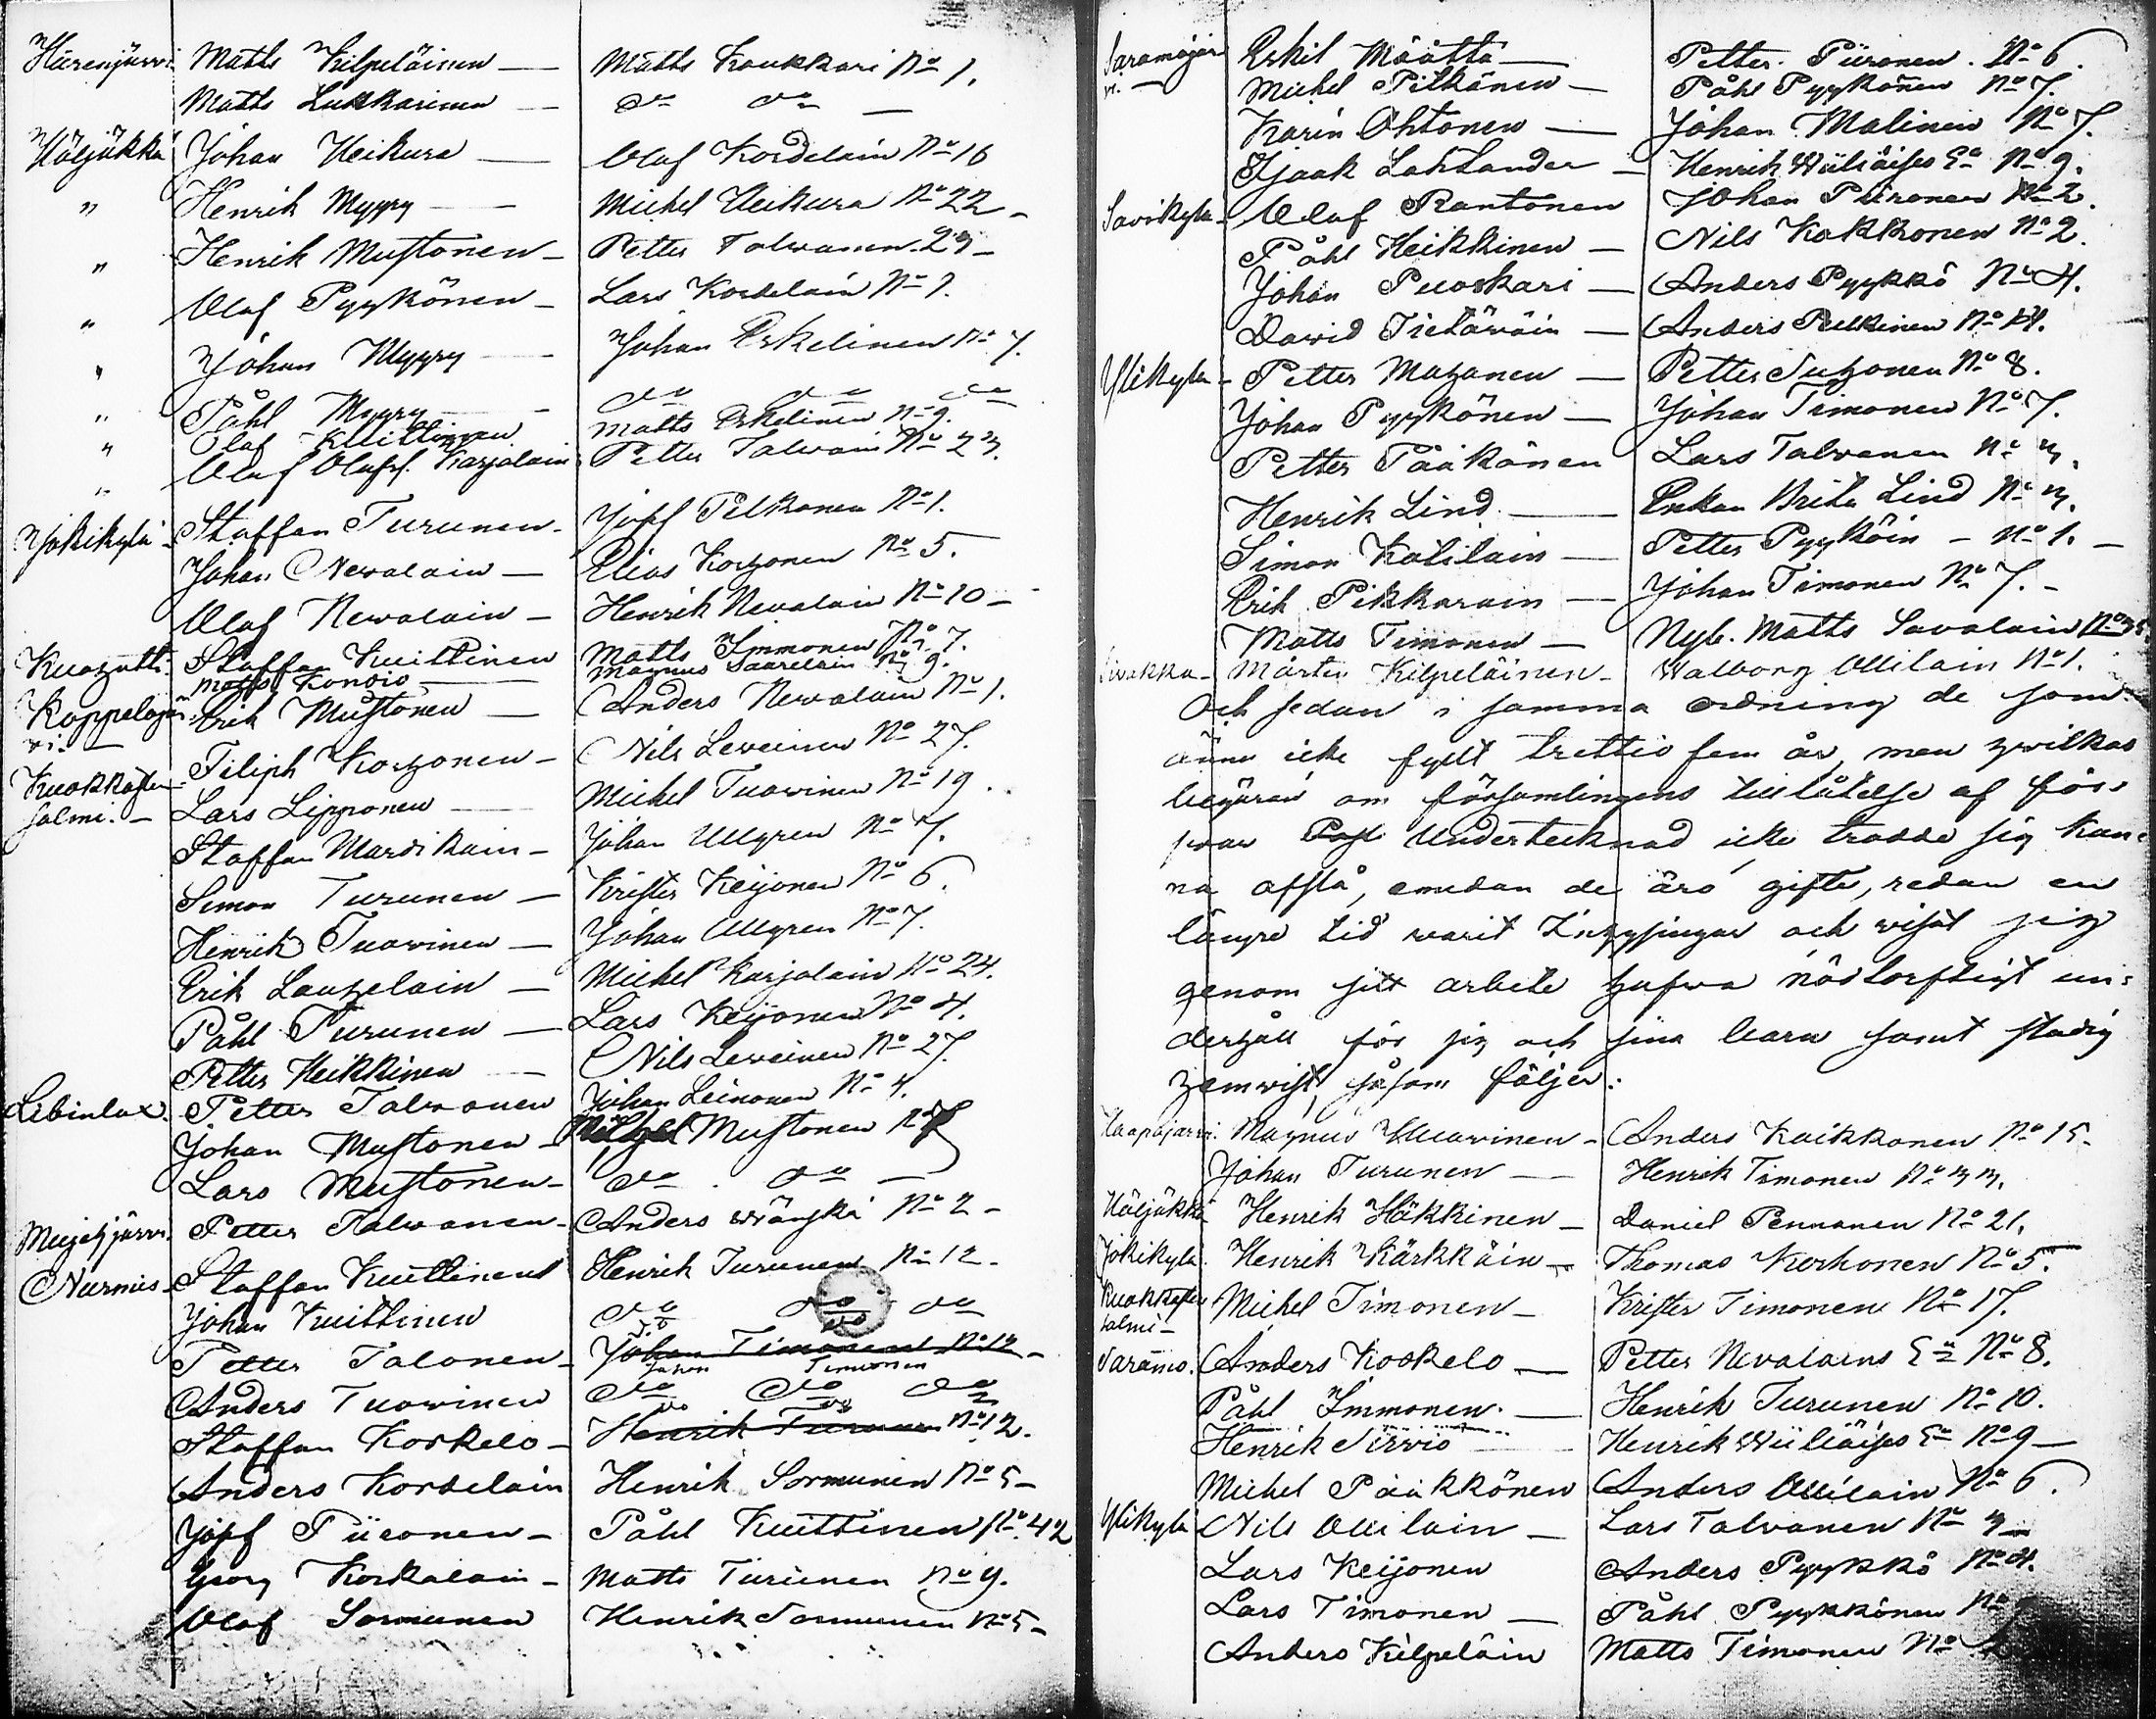 Hiirenjärvi. Matts Kilpeläinen — Matts Koukkari No 1.
Matts Lukkarinen — do do —
Höljäkkä Johan Heikura — Olof Kordelain No 16
" Henrik Myyry — Michel Heikura No 22 –
" Henrik Mustonen – Petter Talwanen. 23 –
" Olof Pyykönen – Lars Kordelain No 1.
" Johan Myyry — Johan Eskelinen No 7.
" Påhl Myyry — do do do
" Olof Kuittinen Matts Eskelinen No 9.
" Olof Olofss. Karjalain Petter Talwain No 23.
Jokikylä – Staffan Turunen – Josef Pelkonen No 1.
Johan Newalain — Elias Korhonen No 5.
Olof Newalain – Henrik Nevalain No 10 –
Kuohatti. Staffan Kuittinen Matts Immonen No 7.
Matts Kontio — Magnus Saarelain No 9.
Koppelojär- Erik Mustonen — Anders Newalain No 1.
vi. — Filiph Korhonen – Nils Leveinen No 27.
Kuokkasten- Lars Lipponen — Michel Tuowinen No 19.
salmi. – Staffan Mardikain – Johan Ullgren No 7.
Simon Turunen – Krister Keijonen No 6.
Henrik Tuowinen — Johan Ullgren No 7.
Erik Lauhelain — Michel Karjalain No 24.
Påhl Turunen — Lars Keijonen No 4.
Petter Heikkinen — Nils Leveinen No 27.
Libinlax. Petter Talwanen Johan Leinonen No 4.
Johan Mustonen – Michel Mustonen No 7
Lars Mustonen – do do —
Mujejärvi. Petter Talwanen – Anders Wänskä No 2 –
Nurmis – Staffan Kuittinen Henrik Turunen No 12 –
Johan Kuittinen do do do
Petter Talonen – Johan Timonen No 12 –
Johan Timonen
Anders Tuowinen do do do
Staffan Koskelo – Henrik Turunen No 12.
Anders Kordelain Henrik Sormunen No 5 –
Josef Piironen – Påhl Kuittinen No 42
Georg Korkalain – Matts Turunen No 9.
Olof Sormunen Henrik Sormunen No 5 –
Saramojär- Eskil Määttä — Petter Piironen. No 6.
vi. — Michel Pitkänen — Påhl Pyykönen No 7.
Karin Ohtonen — Johan Malinen No 7.
Isaak Lahlander – Henrik Wiiliäises Ea No 9.
Savikylä – Olof Rantonen Johan Piironen No 2.
Påhl Heikkinen — Nils Kokkonen No 2.
Johan Puoskari — Anders Pyykkö No 4.
Dawid Tietäwäin — Anders Pulkinen No 14.
Ylikylä – Petter Mahonen — Petter Suhonen No 8.
Johan Pyykönen — Johan Timonen No 7.
Petter Pääkönen Lars Talvanen No 3.
Henrik Lind. — Enkan Brita Lind No 3.
Simon Kotilain — Petter Pyyköin – No 1. –
Erik Pikkarain — Johan Timonen No 7. –
Matts Timonen — Nyb. Matts Savolain No 35
Sivakka – Mårten Kilpeläinen – Walborg Ollilain No 1.
Och sedan i samma ordning de som
ännu icke fyllt trettio fem år, men hwilkas
begäran om församlingens tillåtelse af för-
swar Past Undertecknad icke trodde sig kun-
na afslå, emedan de äro gifte, redan en
längre tid warit Inhysingar och wisat sig
genom sitt arbete hafwa nödtorftigt un-
derhåll för sig och sina barn samt stadig
hemwist, såsom följer:
Haapajärvi. Magnus Kuowinen – Anders Kaikkonen No 15 –
Johan Turunen — Henrik Timonen No 33.
Höljäkkä Henrik Häkkinen – Daniel Pennanen No 21.
Jokikylä. Henrik Kärkkäin – Thomas Korhonen No 5.
Kuokkasten Michel Timonen – Krister Timonen No 17.
salmi –
Saramo. Anders Koskelo — Petter Nevalains Ea No 8.
Påhl Immonen. — Henrik Turunen No 10.
Henrik Sirviö Henrik Wiiliäises Ea No 9 —
Michel Pääkkönen Anders Ollilain No 6.
Ylikylä Nils Ollilain — Lars Talvanen No 3 —
Lars Keijonen Anders Pyykkö No 4.
Lars Timonen — Påhl Pyykkönen No
Anders Kilpeläin Matts Timonen No